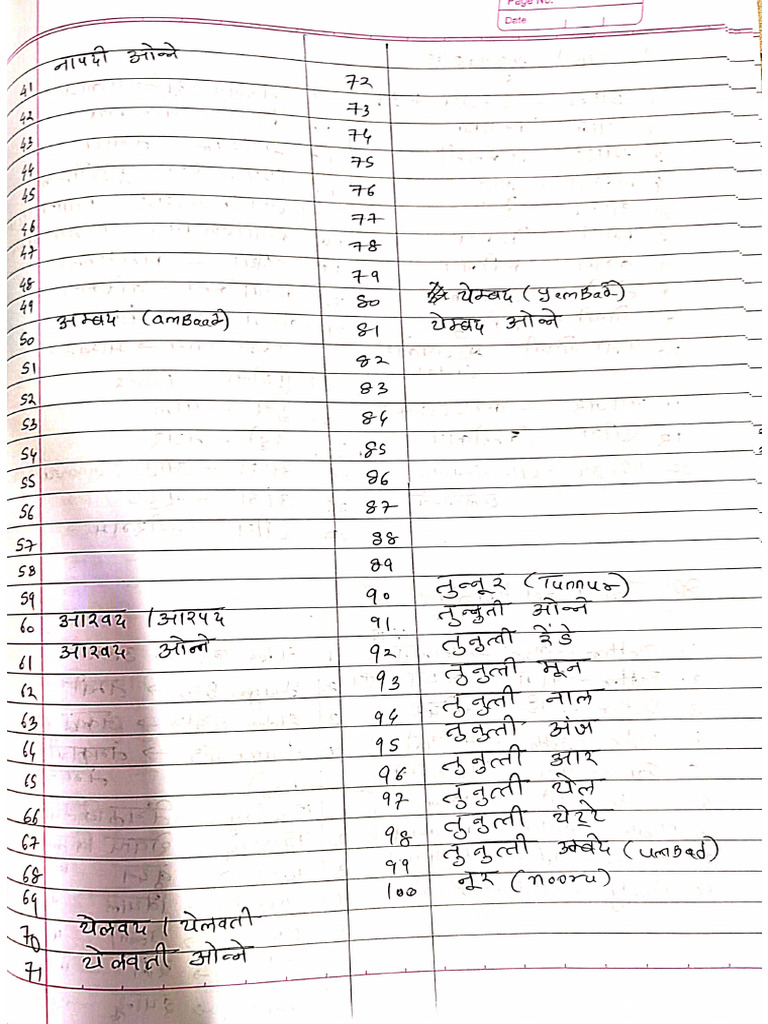 Page No.
Date
41 नापदी ओन्ने
42
43
44
45
46
47
48
49
50 अम्बद (amBaad)
51
52
53
54
55
56
57
58
59
60 आरवद / आरपद
61 आरवद ओन्ने
62
63
64
65
66
67
68
69
70 येलवद / येलवती
71 येलवती ओन्ने
72
73
74
75
76
77
78
79
80 येम्बद (yemBad)
81 येम्बद ओन्ने
82
83
84
85
86
87
88
89
90 तुन्नूर (Tunnur)
91 तुन्नुती ओन्ने
92 तुनुत्ती रेंडे
93 तुनुत्ती मून
94 तुनुत्ती नाल
95 तुनुत्ती अंज
96 तुनुत्ती आर
97 तुनुत्ती येल
98 तुनुत्ती येट्टे
99 तुनुत्ती उम्बद (umBad)
100 नूर (nooru)